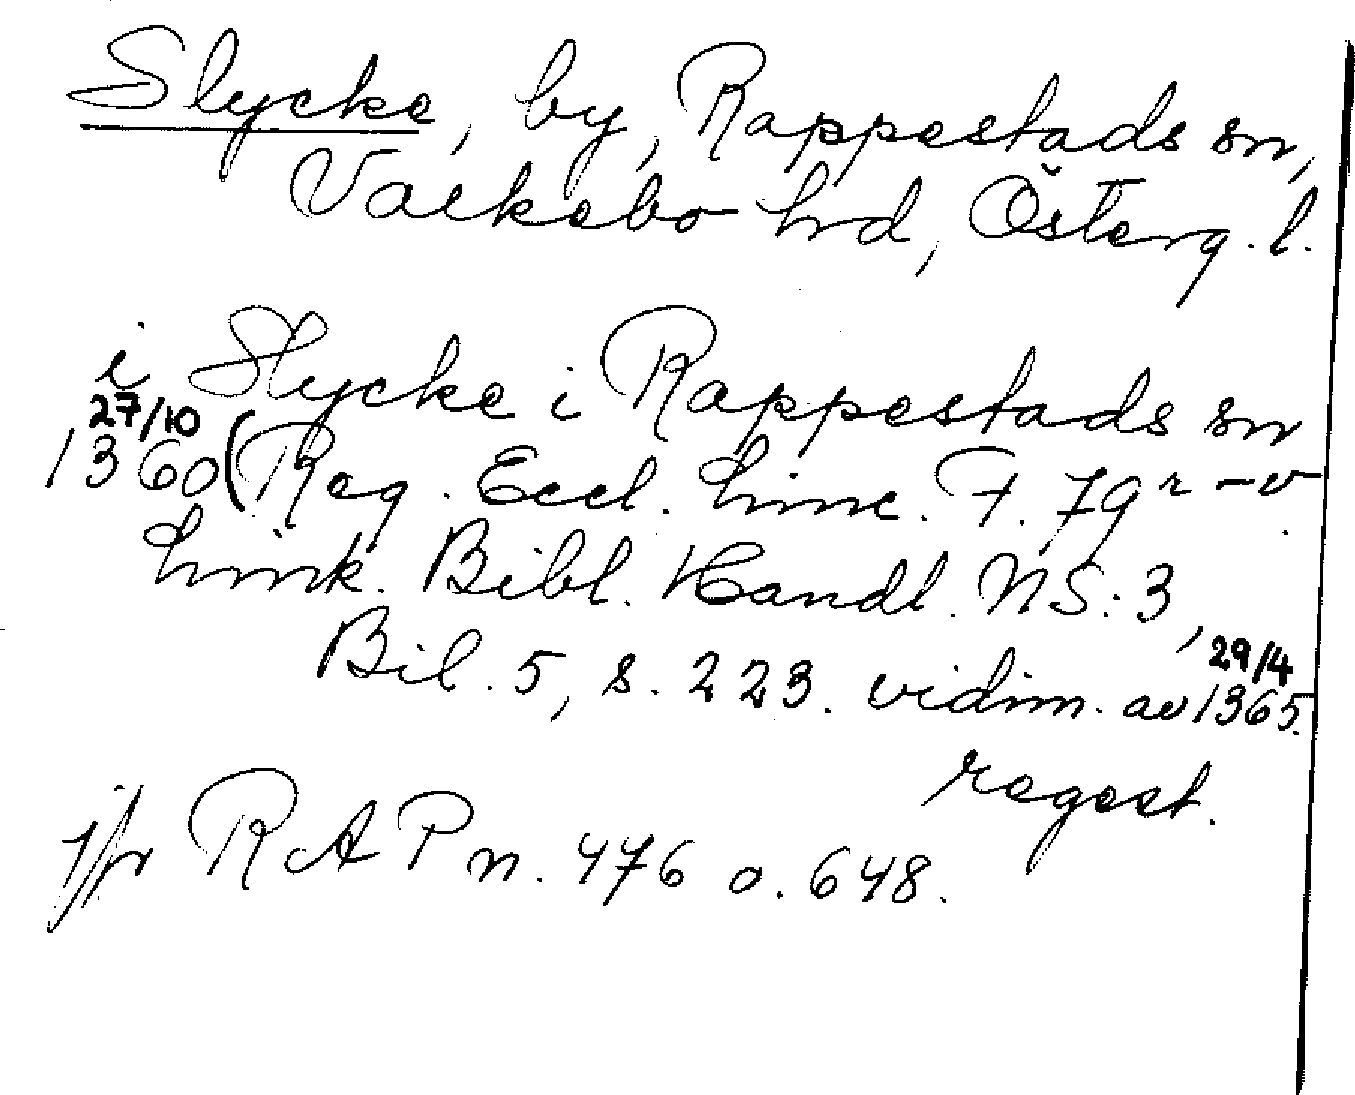 Slycke, by, Rappestads sn,
Valkebo hrd, Österg. l.
i Slycke i Rappestads sn
27/10
1360 (Reg. Eccl. Linc. F. 79 r-v.
Link. Bibl. Handl. NS: 3,
Bil. 5, s. 223. vidim. av 29/4 1365.
regest.
jfr RAP n. 476 o. 648.